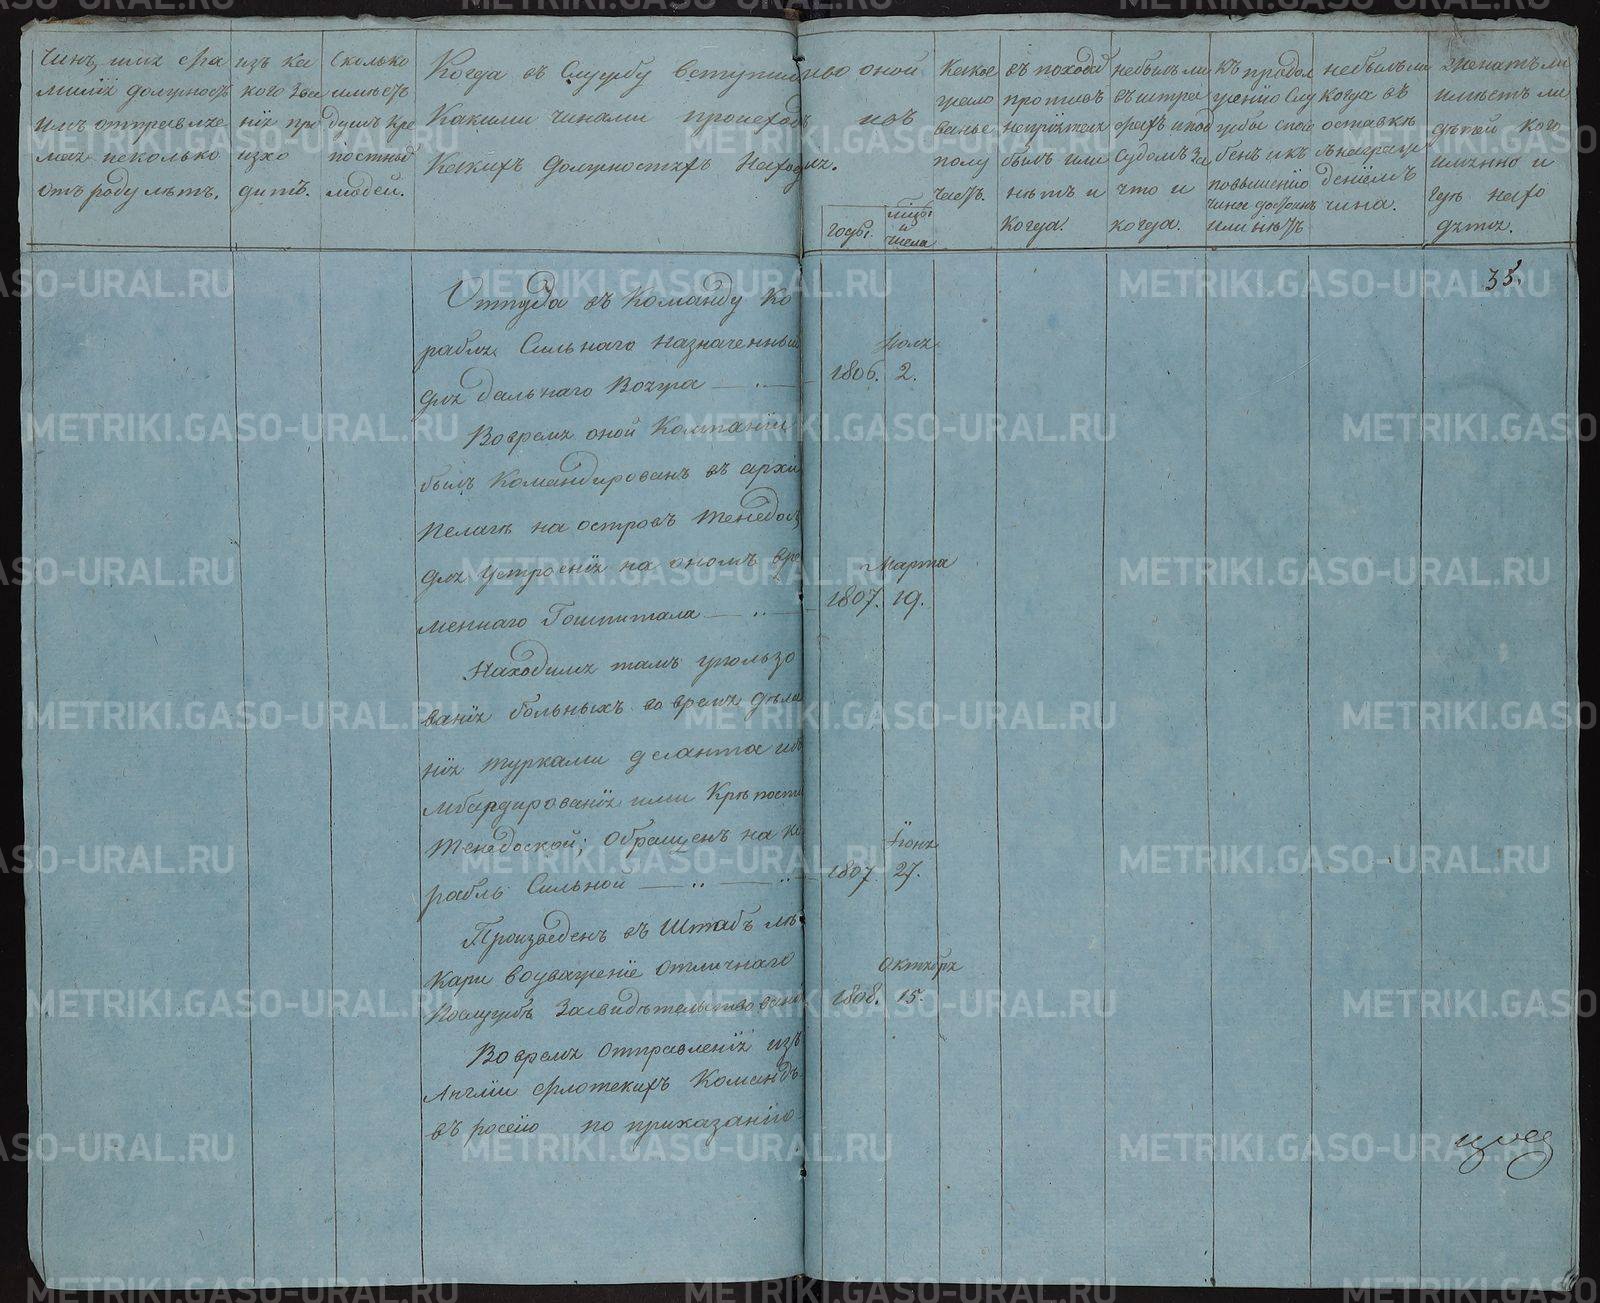 Чинъ, имя фа
милія должность
имъ отправляе
мая исколько
отъ роду лѣтъ.
изъ ка
кого зва
нія про
изхо
дитъ.
Сколько
имѣетъ
душъ кре
постныхъ
людей.
Когда въ Службу вступилъ во оной
Какими чинами происход. изъ
Какихъ должностяхъ находил.
годы.
мѣсяцы
и
числа
Какое
жало
ванье
полу
чаетъ.
въ походах
противъ
непріятеля
былъ или
нѣтъ и
Когда.
небылъ ли
въ штра
фахъ и под
Судомъ за
что и
когда.
къ продол
женію Слу
жбы спосо
бенъ и къ
повышенію
чина достоинъ
или нѣтъ
небылъ ли
Когда въ
отставкѣ
съ награж
деніемъ
чина.
Женатъ ли
имѣетъ ли
дѣтей кого
имянно и
гдѣ нахо
дятся.
35.
Оттуда въ Команду Ко
рабля Сильнаго назначенный
для дальнаго Вояжа
Іюля
1806. 2.
Вовремя оной Компаніи
былъ Командированъ въ архи
пелагъ на островъ тенедосъ
для устроенія на ономъ вре
меннаго Гошпиталя
Марта
1807. 19.
Находился тамъ упользо
ванія больныхъ во время дѣла
нія турками десанта и бо
мбардированія ими Крѣпости
Тенедоской; Обращенъ на Ко
рабль Сильной
Іюня
1807 27.
Произведенъ въ Штабъ лѣ
кари воуваженіе отличнаго
послужбѣ Засвидѣтельствованія
Октября
1808. 15.
Вовремя Отправленія изъ
Англіи флотскихъ Командъ
въ росею по приказанію